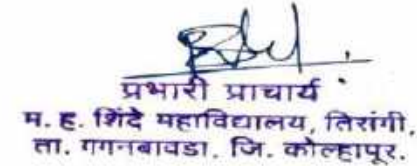 प्रभारी प्राचार्य
म. ह. शिंदे महाविद्यालय, तिसंगी,
ता. गगनबावडा. जि. कोल्हापूर.